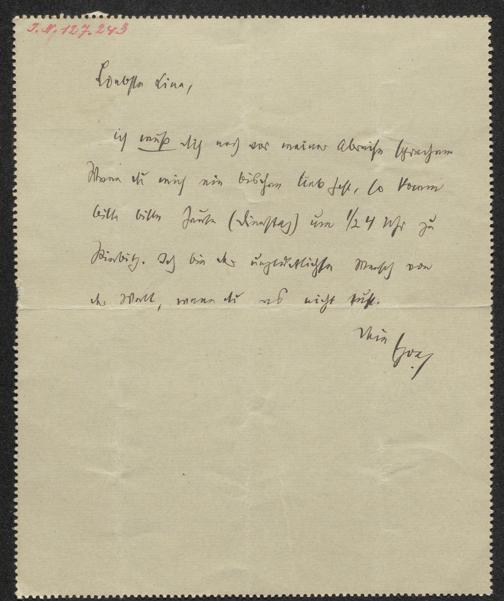 I. N. 127.243
Liebste Lina,
ich muß dich noch vor meiner Abreise sprechen
Wenn du mich ein bischen lieb hast, so komm
bitte bitte heute (Dienstag) um 1/2 4 Uhr zu
Ich bin der unglücklichste Mensch von
der Welt, wenn du es nicht tust.
Dein